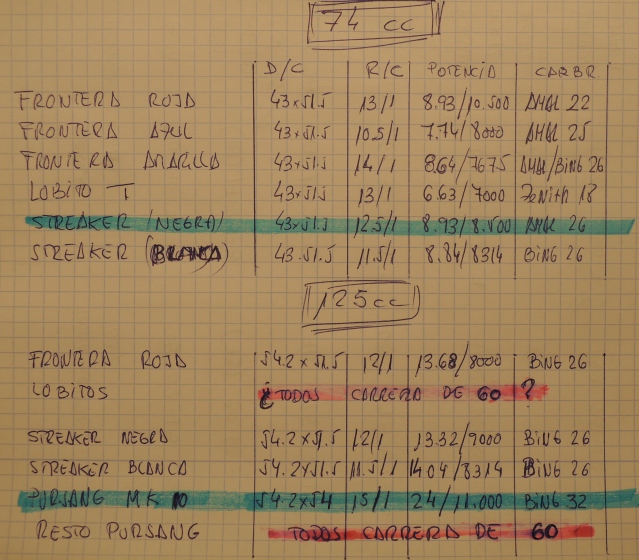 74 cc
D/C R/C POTENCIA CARBR
FRONTERA ROJA 43x51.5 13/1 8.93/10.500 AMAL 22
FRONTERA AZUL 43x51.5 10.5/1 7.74/8000 AMAL 25
FRONTERA AMARILLA 43x51.5 14/1 8.64/7675 AMAL/BING 26
LOBITO T 43x51.5 13/1 6.63/7000 Zenith 18
STREAKER (NEGRA) 43x51.5 12.5/1 8.93/8.500 AMAL 26
STREAKER (BLANCA) 43.51.5 11.5/1 8.84/8314 BING 26
125cc
FRONTERA ROJA 54.2x51.5 12/1 13.68/8000 BING 26
LOBITOS ¿TODOS CARRERA DE 60 ?
STREAKER NEGRA 54.2x51.5 12/1 13.32/9000 BING 26
STREAKER BLANCA 54.2x51.5 11.5/1 14.04/8314 BING 26
PURSANG MK 10 54.2x54 15/1 24/11.000 BING 32
RESTO PURSANG TODOS CARRERA DE 60